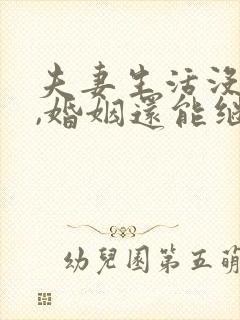 夫妻生活没
,婚姻還能继
幼兒園第五萌